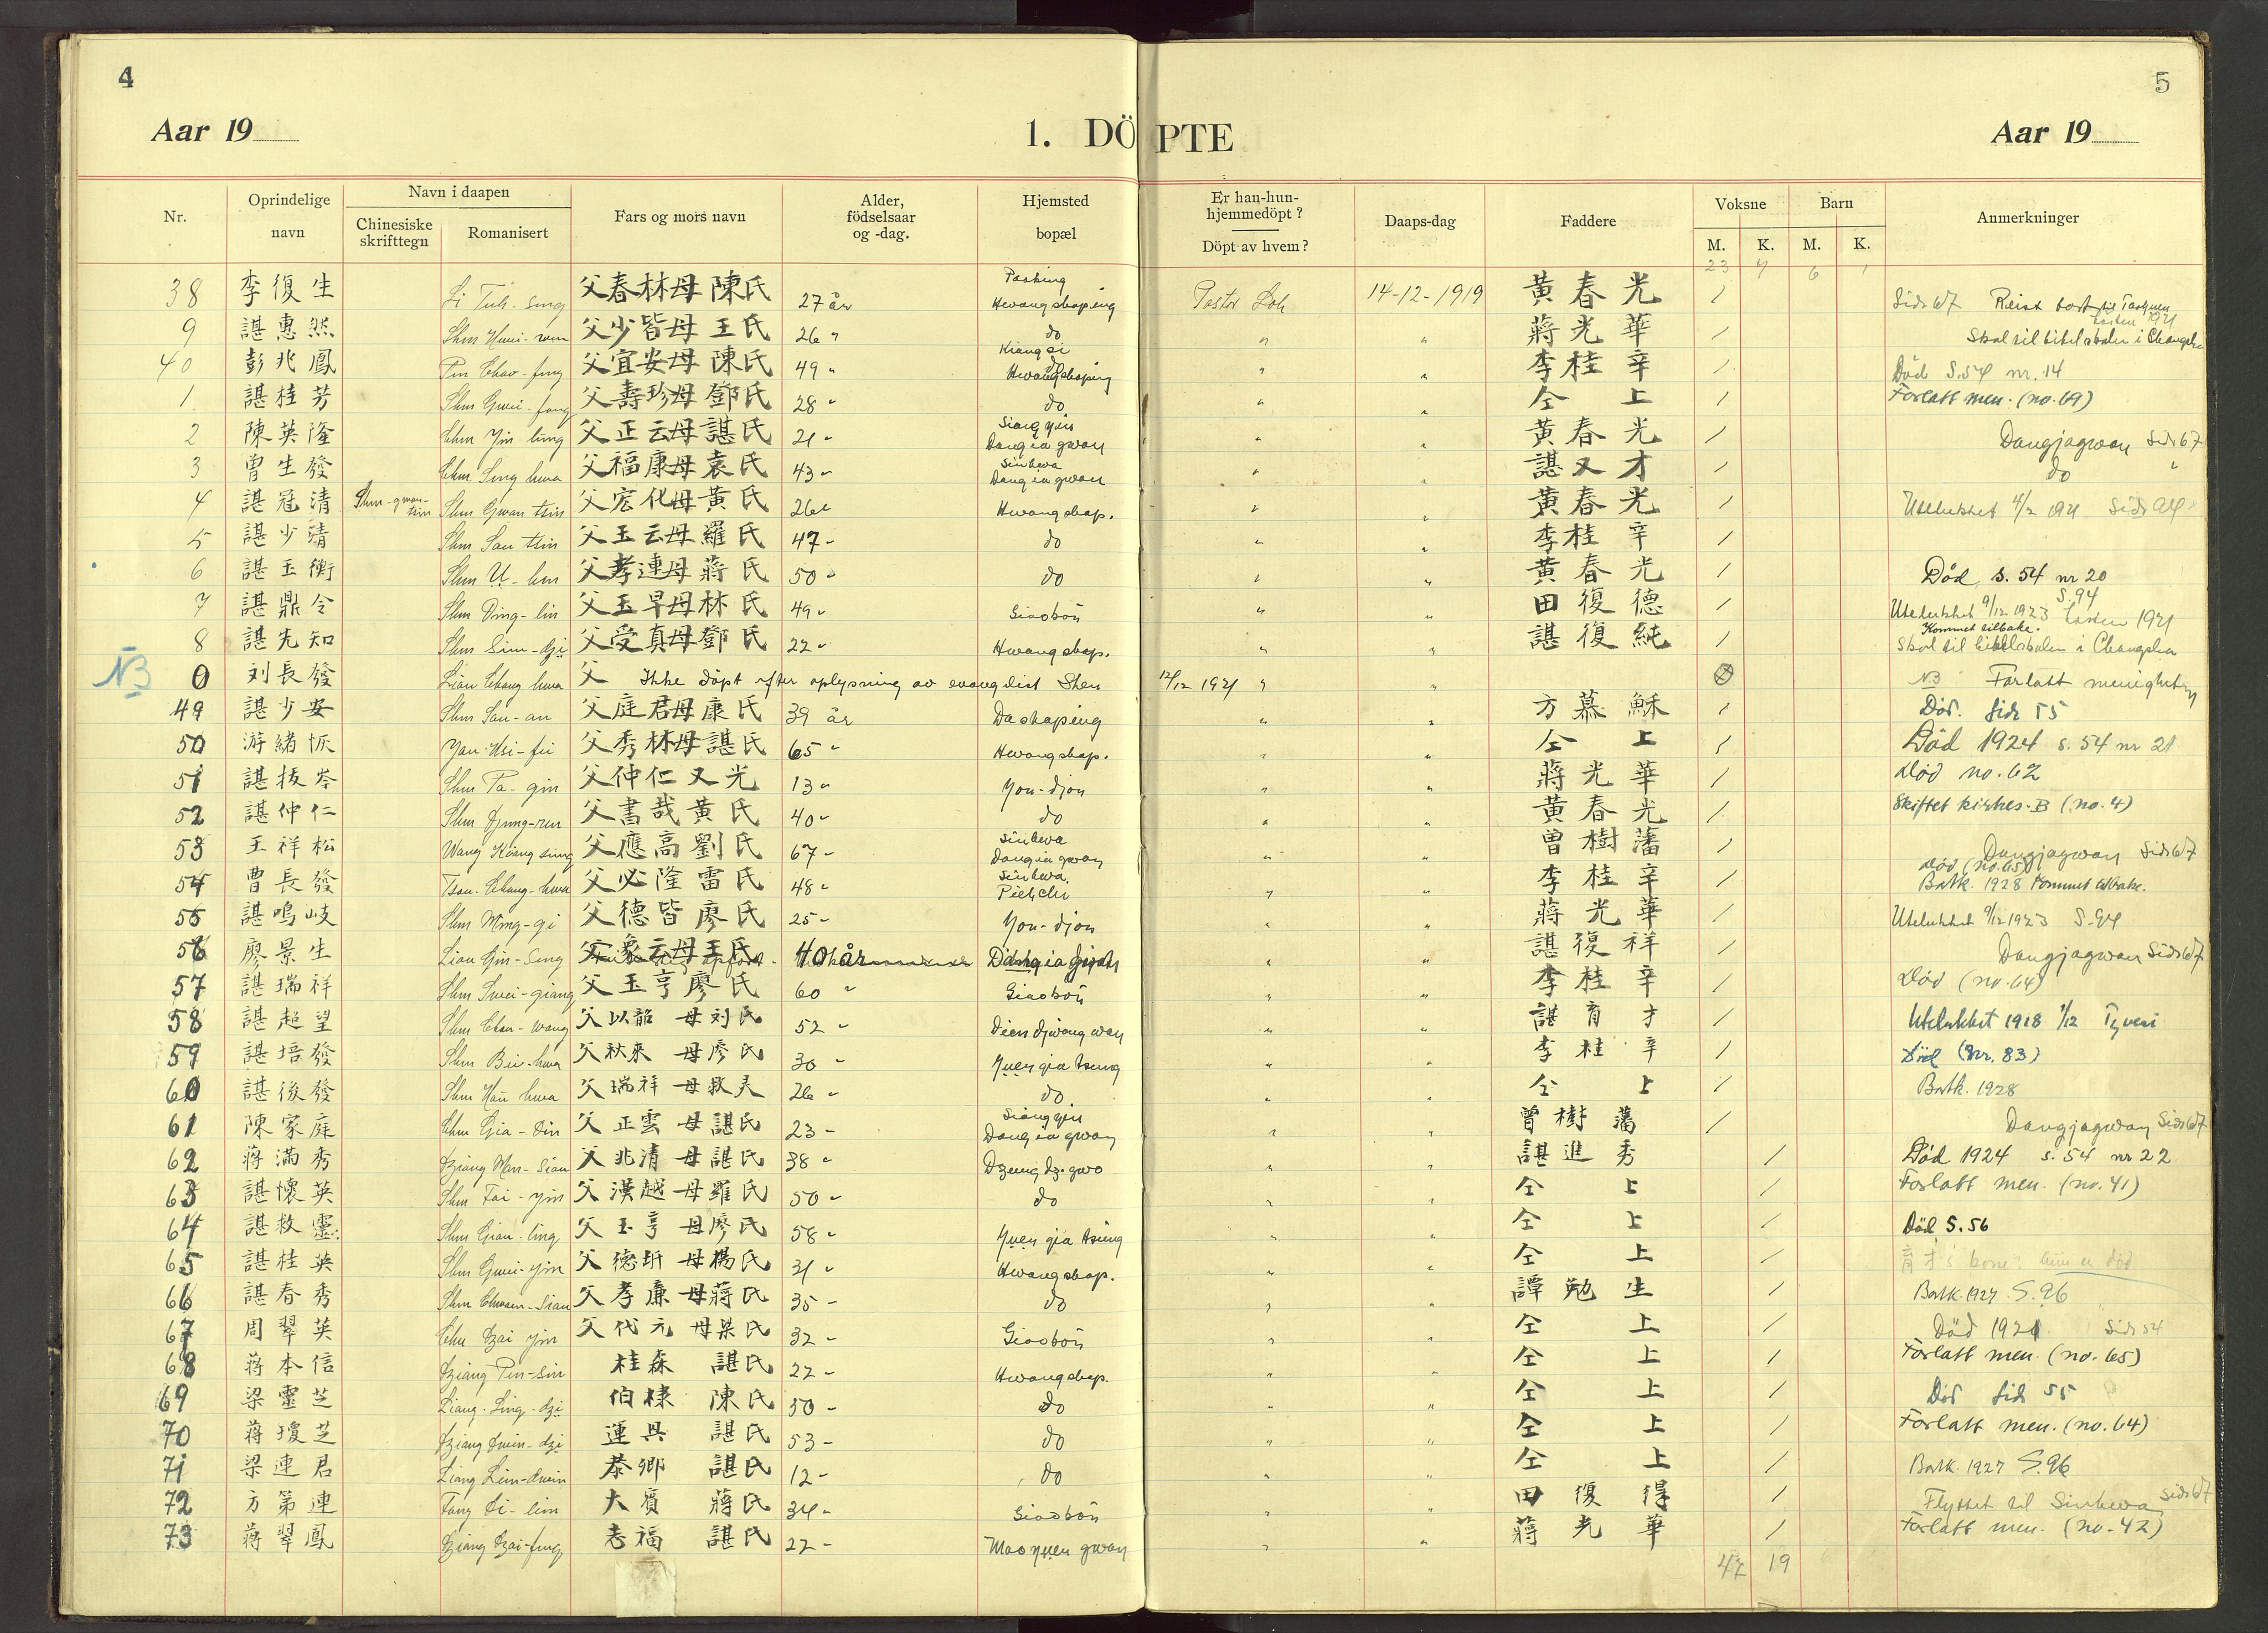 4
5
Aar 19
1. DÖPTE
Aar 19
Nr.
Oprindelige navn
Navn i daapen
Chinesiske skrifttegn
Romanisert
Fars og mors navn
Alder, födselsaar og -dag.
Hjemsted bopæl
Er han-hun-hjemmedöpt?
Döpt av hvem?
Daaps-dag
Faddere
Voksne
Barn
M. K. M. K.
Anmerkninger
23 7 6 1
38 李復生 Li Fuh-sing 父春林母陳氏 27 år Hwangshaping Pastor 14-12-1919 黃春光 / Side 67
9 諶惠然 父少皆母王氏 26 " do " " 蔣光華 / Skal til bibelskolen i Changsha
40 彭兆鳳 父宜安母陳氏 49 " Kiangsi Hwangshaping " " 李桂辛 / Död S.54 nr. 14
1 諶桂芳 父壽珍母鄧氏 28 " do " " 仝上 / Forlatt men. (no. 69)
2 陳英隆 父正云母諶氏 21 " Siangyin Dangia gwan " " 黃春光 / Dangjagwan Side 67
3 曾生發 父福康母袁氏 43 " Sinhwa Dangia gwan " " 諶又才 / do "
4 諶冠清 Shen-gwan-tsin Shen Gwan tsin 父宏化母黃氏 26 " Hwangshap. " " 黃春光 / Utelukket
5 諶少清 Shen Sau tsin 父玉云母羅氏 47 " do " " 李桂辛 /
6 諶玉衡 父孝連母蔣氏 50 " do " " 黃春光 / Död, s. 54 nr 20
7 諶鼎令 Shen Ding-lin 父玉早母林氏 49 " Giaoboň " " 田復德 / Utelukket 9/12 1923 S.94 Kommet tilbake.
8 諶先知 父受真母鄧氏 22 " Hwangshap. " " 諶復純 / Høsten 1921 Skal til bibelskolen i Changsha
NB 0 刘長發 父 Ikke döpt efter oplysning av evangelist Shen 12/12 1921 " " NB Forlatt menigheten
49 諶少安 Shen Sau-an 父庭君母康氏 39 år Dashaping " " 方慕穌 / Död. Side 55
50 游緒恢 父秀林母諶氏 65 " Hwangshap. " " 仝上 / Död 1924 s. 54 nr 21
51 諶拔岑 Shen Pa-gin 父仲仁又光 13 " You-djon " " 蔣光華 / Död no. 62
52 諶仲仁 父書哉黃氏 40 " do " " 黃春光 / Skiftet kirkes-B (no. 4)
53 王祥松 父應高劉氏 67 " Sinhwa Dangia gwan " " 曾樹藩 / Dangjagwan Side 67
54 曹長發 父必隆雷氏 48 " Sinhwa Pietchi " " 李桂辛 / Död (no. 65) Bortk. 1928 Kommet tilbake.
55 諶鳴岐 Shen Ming-gi 父德皆廖氏 25 " You-djon " " 蔣光華 / Utelukket 9/12 1923 S.94
56 廖景生 Liau Gin-Seng 父象云母王氏 40 år Dangia gwan " " 諶復祥 / Dangjagwan Side 67
57 諶瑞祥 父玉亨廖氏 60 " Giaoboň " " 李桂辛 / Död (no. 64)
58 諶超望 父以韶 母刘氏 52 " Dien djwang wan " " 諶育才 / Utelukket 1918 1/12 Tyveri
59 諶培發 父秋來 母廖氏 30 " Yuen gia tseng " " 李桂辛 / Död (Nr. 83)
60 諶後發 父瑞祥 母救灵 26 " do " " 仝上 / Bortk. 1928
61 陳家庭 父正雲 母諶氏 23 " Siangyin Dangia gwan " " 曾樹藩 / Dangjagwan Side 67
62 蔣滿秀 父兆清 母諶氏 38 " Dzeng dz. gwo " " 諶進秀 / Död 1924 s. 54 nr 22
63 諶懷英 父漢越 母羅氏 50 " do " " 仝上 / Forlatt men. (no. 41)
64 諶救靈 父玉亨 母廖氏 58 " Yuen gia tseng " " 仝上 / Död S. 56
65 諶桂英 Shen Gwei-yin 父德圻 母楊氏 31 " Hwangshap. " " 仝上 / 育才's kone: hun er död
66 諶春秀 父孝廉 母蔣氏 35 " do " " 譚勉生 / Bortk. 1927 S. 96
67 周翠英 父代元 母梁氏 32 " Giaoboň " " 仝上 / Död 1921 Side 54
68 蔣本信 桂森 諶氏 22 " Hwangshap. " " 仝上 / Forlatt men. (no. 65)
69 梁靈芝 Liang-Ling-dzi 伯棣 陳氏 50 " do " " 仝上 / Död Side 55
70 蔣瓊芝 運興 諶氏 53 " do " " 仝上 / Forlatt men. (no. 64)
71 梁連君 泰卿 諶氏 12 " do " " 仝上 / Bortk. 1927 S. 96
72 方第連 Fang Di-lien 大賓 蔣氏 34 " Giaoboň " " 田復得 / Flyttet til Sinhwa Side 67
73 蔣翠鳳 志福 諶氏 22 " Maoyuen gwan " " 蔣光華 / Forlatt men. (no. 42)
47 19